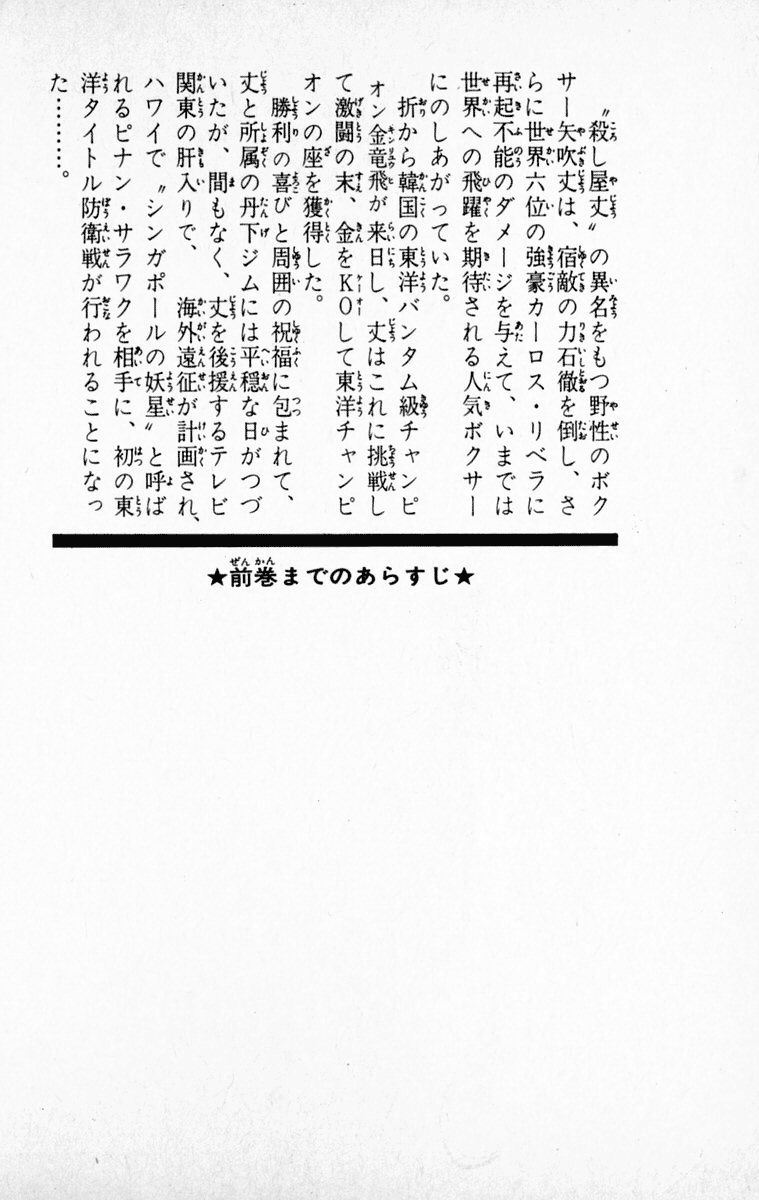 〝殺し屋丈〟の異名をもつ野性のボク
サー矢吹丈は、宿敵の力石徹を倒し、さ
らに世界六位の強豪カーロス・リベラに
再起不能のダメージを与えて、いまでは
世界への飛躍を期待される人気ボクサー
にのしあがっていた。
折から韓国の東洋バンタム級チャンピ
オン金竜飛が来日し、丈はこれに挑戦し
て激闘の末、金をKOして東洋チャンピ
オンの座を獲得した。
勝利の喜びと周囲の祝福に包まれて、
丈と所属の丹下ジムには平穏な日がつづ
いたが、間もなく、丈を後援するテレビ
関東の肝入りで、海外遠征が計画され、
ハワイで〝シンガポールの妖星〟と呼ば
れるピナン・サラワクを相手に、初の東
洋タイトル防衛戦が行われることになっ
た………。
★前巻までのあらすじ★